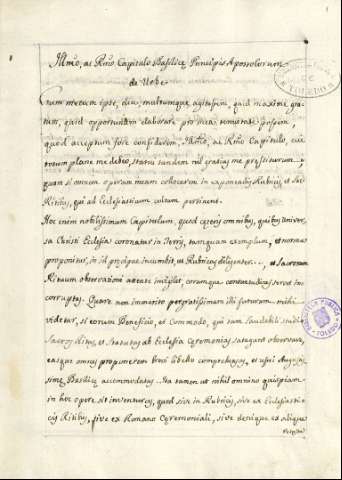 Illmo, ac Rmo Capitulo Basilicæ Principis Apostolorum
de Urbe.
Cum mecum ipse, diu, multumque agitassem, quid maxime gra-
tum, quid opportunum elaborare pro mea tenuitate possem,
quod acceptum fore considerem, Illmo, ac Rmo Capitulo, cui
totum plane me debeo, statui tandem rem gratam me præstiturum,
quam si omnem operam meam collocarem in exponendis Rubricis, et Sac
Ritibus, qui ad Ecclesiasticum cultum pertinent.
Hoc enim nobilissimum Capitulum, quod cæteris omnibus, quibus univer-
sa Christi Ecclesia coronatur in Terris, tanquam exemplum, et norma
proponitur, in id præcipue incumbit, ut Rubricas diligenter, et Sacrorum
Rituum observationi advertat invigilet, eorumque consuetudines servet in-
corruptas. Quare non immerito pergratissimum ibi futurum mihi
videtur, si eorum Beneficio, et Commodo, qui tam laudabili studio
Sacros Ritus, et Statutas ab Ecclesia Ceremonias satagunt observare,
easque omnes proponerem brevi libello comprehensas, et usui Augustis-
simæ Basilicæ accommodatas. Ita tamen ut nihil omnino quispiam
in hoc opere sit inventurus, quod sive in Rubricis, sive ex Ecclesiasti-
cis Ritibus, sive ex Romano Cæremoniali, sive denique ex aliquo